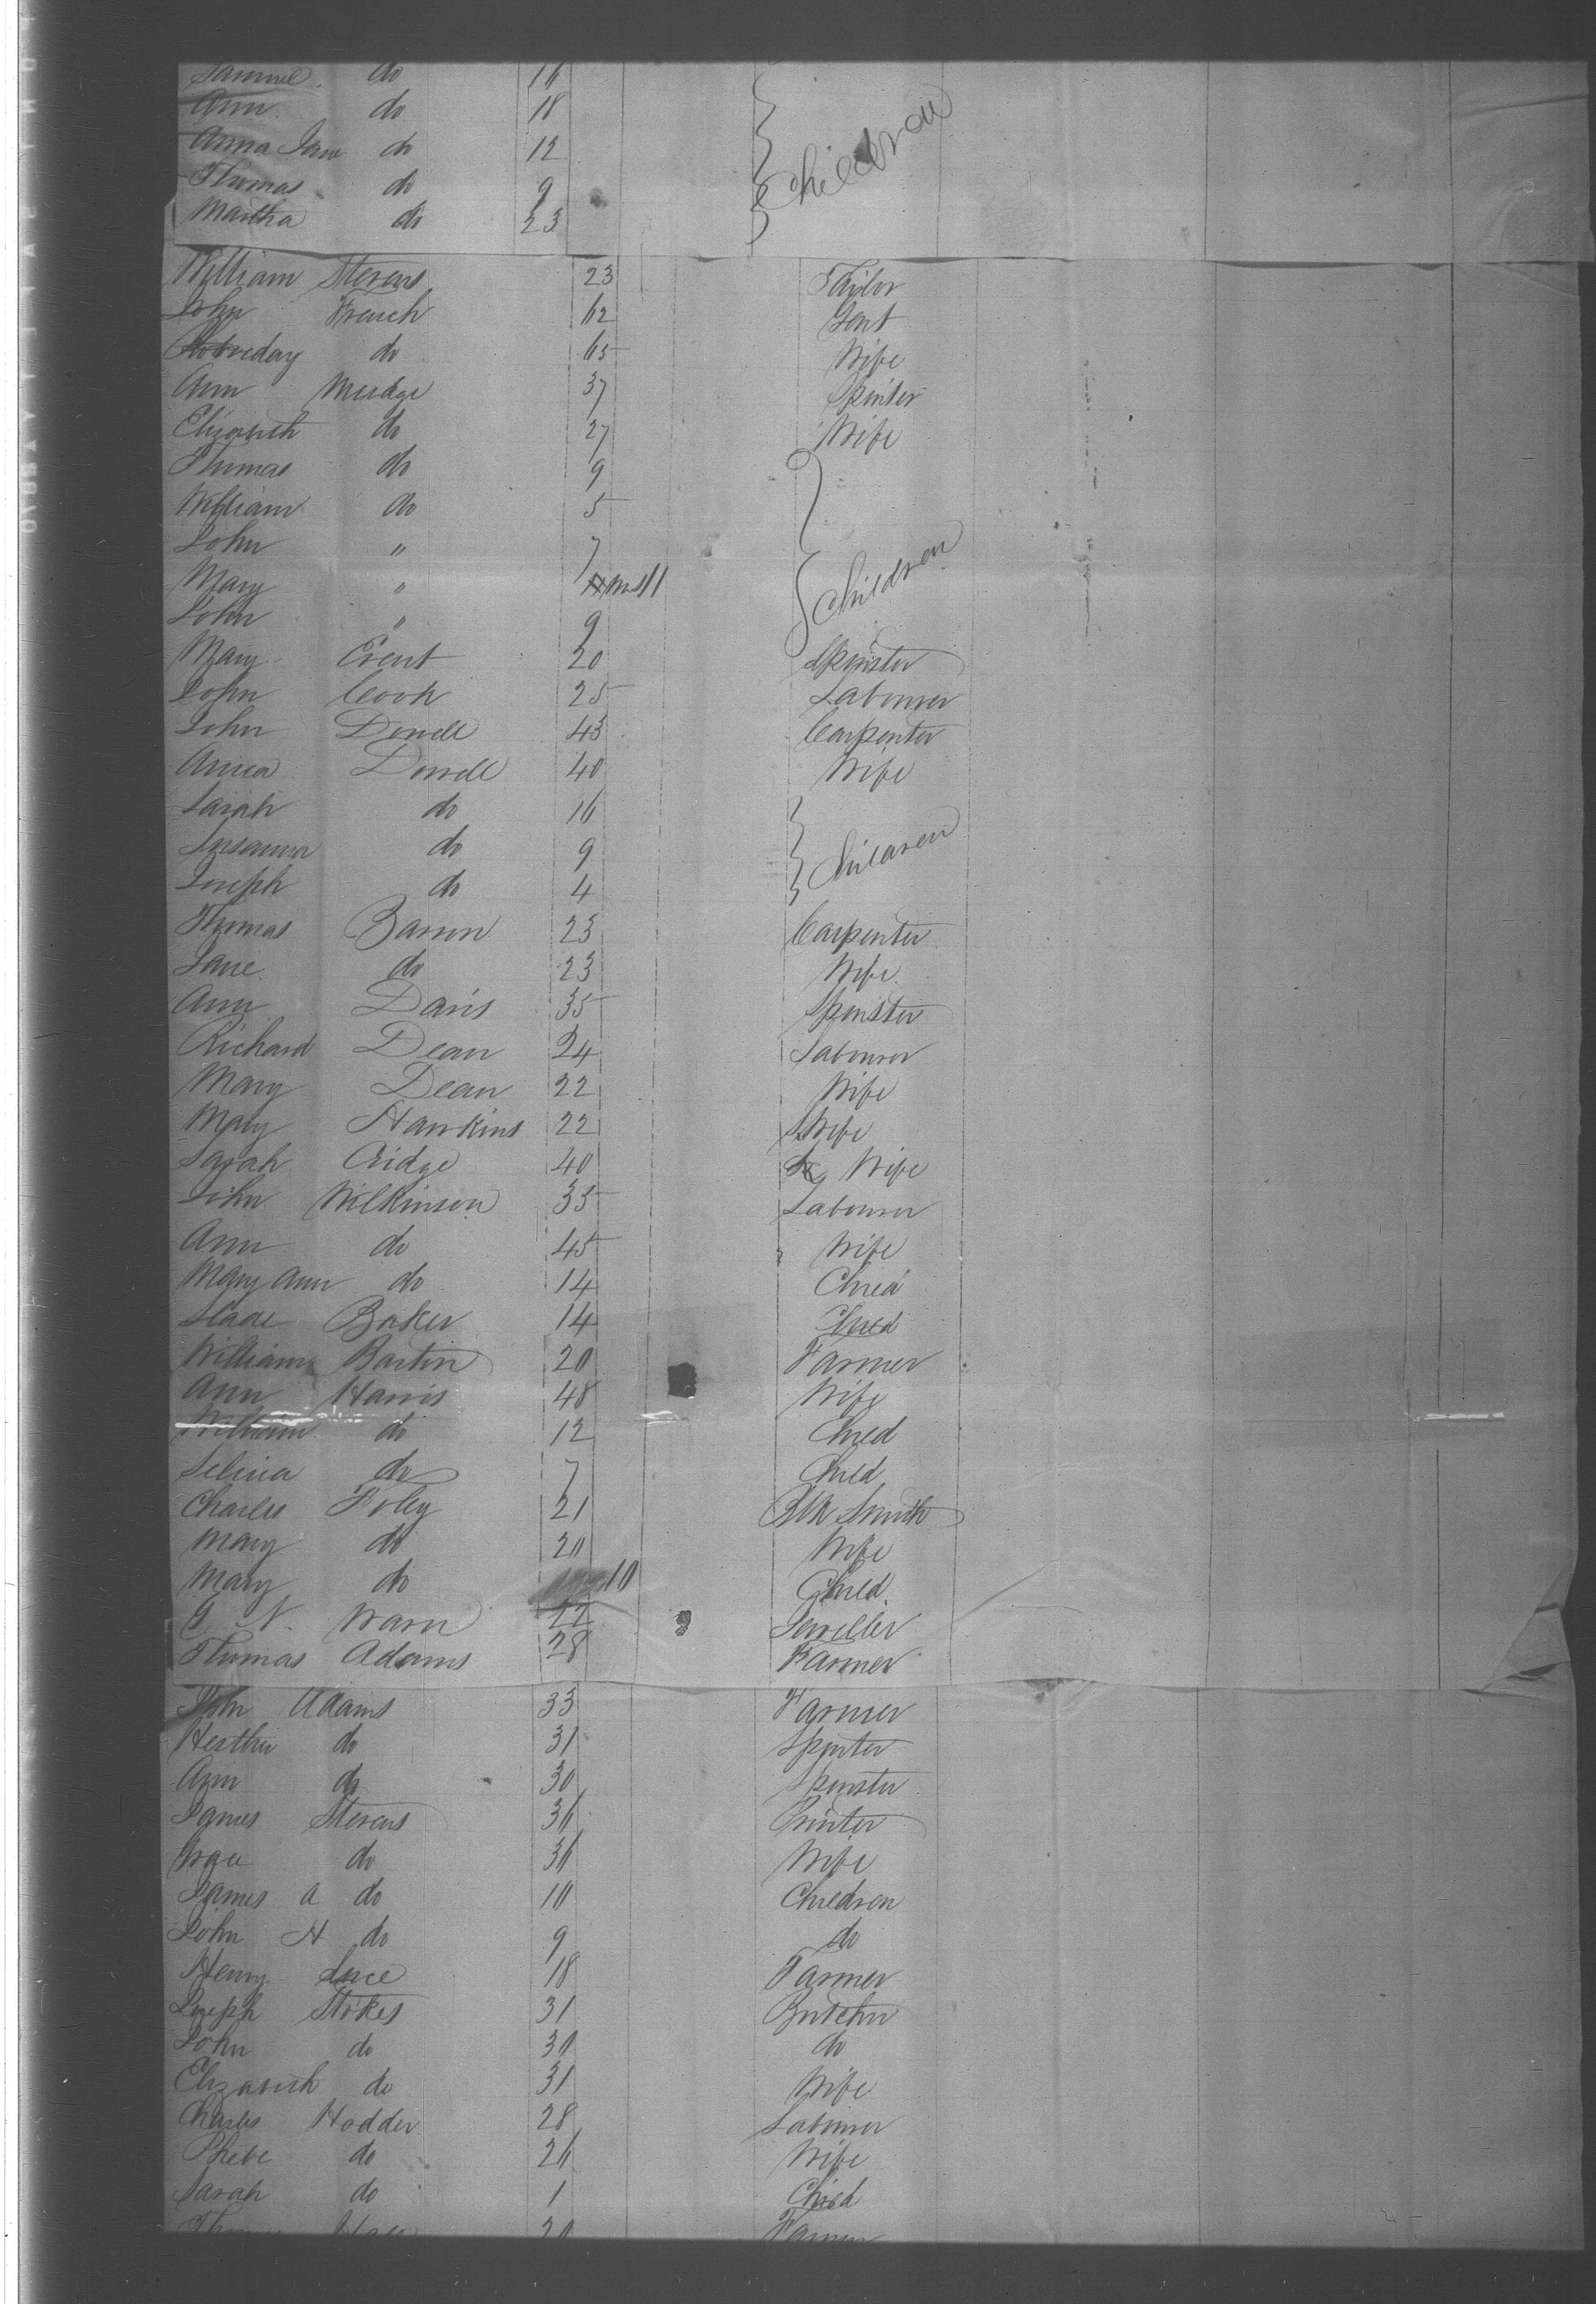 Samuel do 16
Ann do 18
Anna Jane do 12 Children
Thomas do 9
Martha do 23
William Stevens 23 Tailor
John French 62 Gent
do 65 Wife
Ann Mudge 37 Spinter
Elizabeth do 27 Wife
Thomas do 9
William do 5
John " 7
Mary " ms 11 Children
John " 9
Mary 20 Spinster
John Cook 25 Labourer
John 43 Carpenter
40 Wife
Sarah do 16
Susanna do 9 Children
Joseph do 4
Thomas Baron 23 Carpenter
Jane do 23 Wife
Ann Davis 35 Spinster
Richard Dean 24 Labourer
Mary Dean 22 Wife
Mary Hawkins 22 Wife
Sarah 40 Wife
John Wilkinson 35 Labourer
Ann do 45 Wife
Mary Ann do 14 Child
Baker 14 Child
William Bartin 20 Farmer
Ann Harris 48 Wife
William do 12 Child
Selina do 7 Child
Charles Foley 21 Blk Smith
Mary do 20 Wife
Mary do 10 Child
N. Warn 22 Jeweller
Thomas Adams 28 Farmer
John Adams 33 Farmer
Hesther do 31 Spinter
Ann do 30 Spinster
James Stevens 36 Printer
Grace do 36 Wife
James A do 10 Children
John H do 9 do
Henry Luce 18 Farmer
Joseph Stokes 31 Butcher
John do 30 do
Elizabeth do 31 Wife
Charles Hodder 28 Labourer
Phebe do 26 Wife
Sarah do 1 Child
20 Farmer